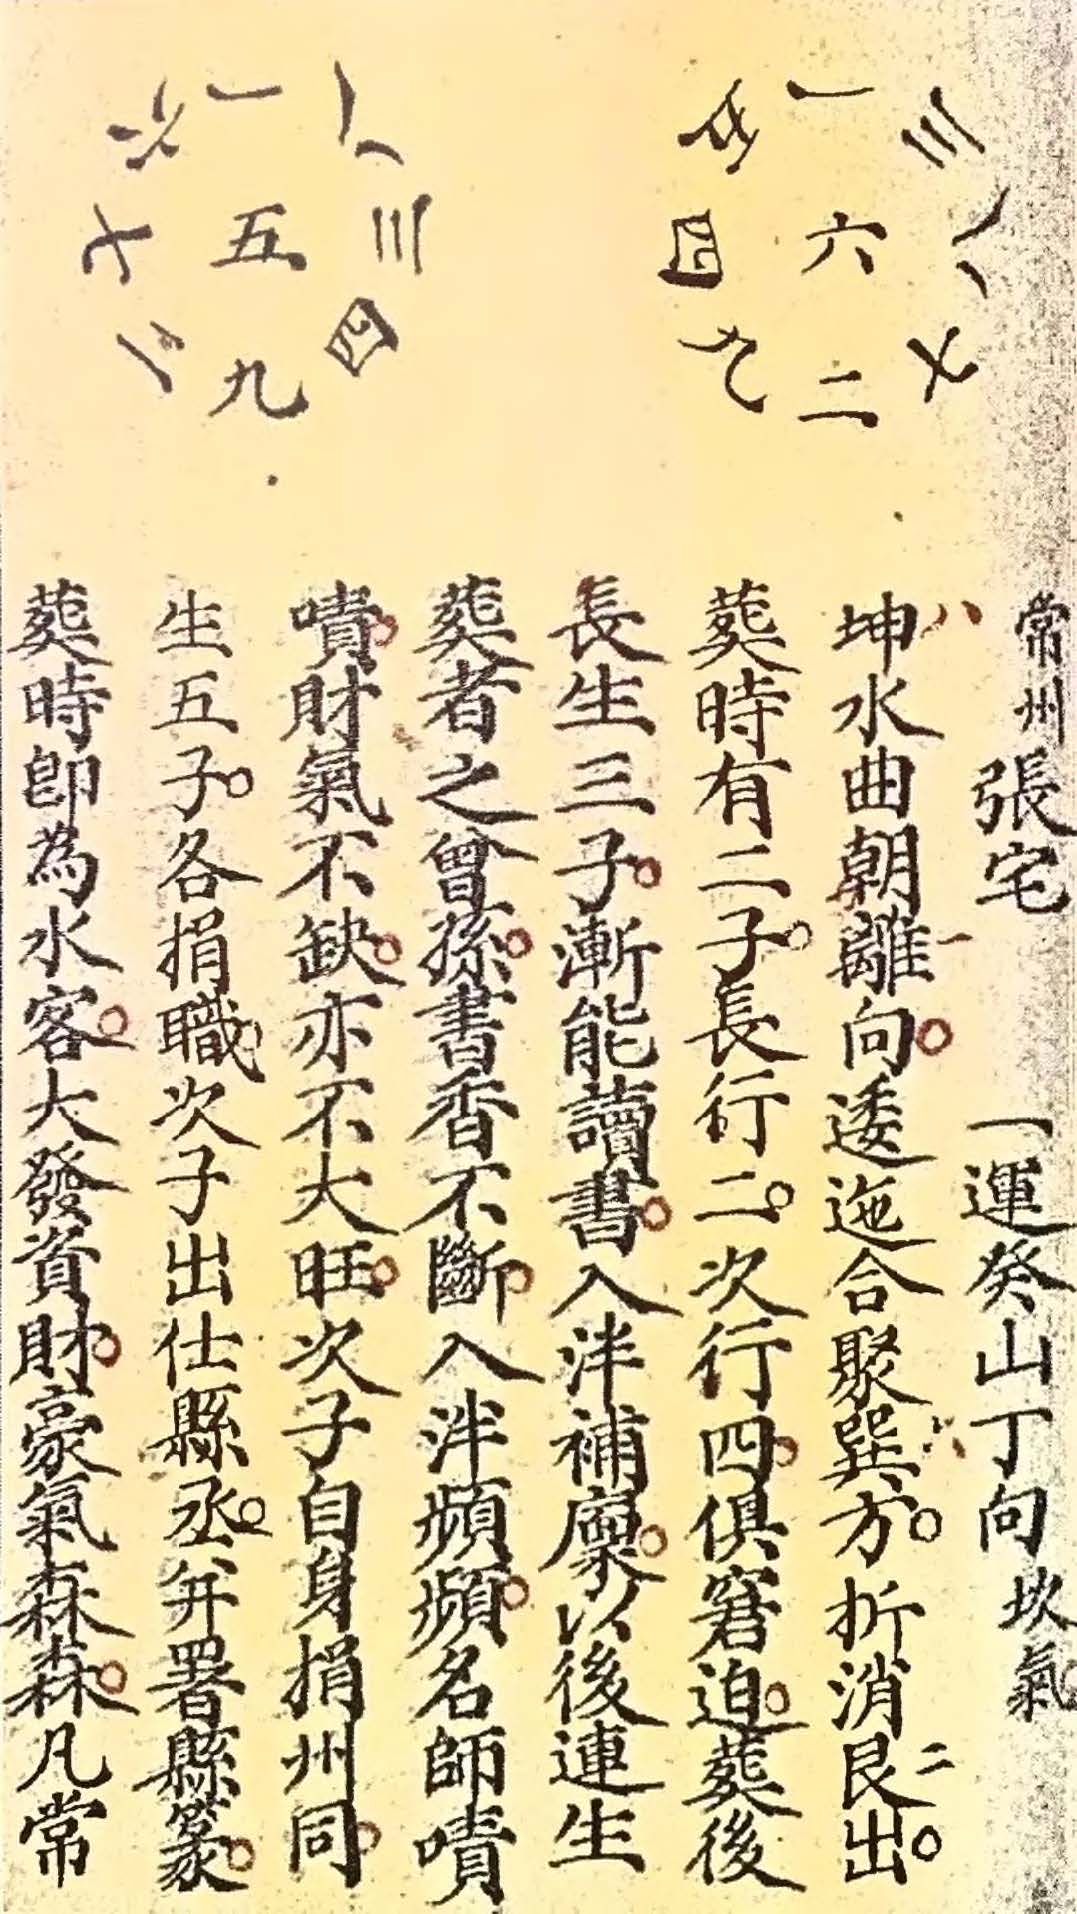 常州張宅 一運癸山丁向 坎氣
坤水曲朝離向逶迤合聚巽方折消艮出
八 一 二
葬時有二子長行二次行四俱窘迫葬後
長生三子漸能讀書入泮補廪以後連生
葬者之曾孫書香不斷入泮頻頻名師嘖
嘖財氣不缺亦不大旺次子自身捐州同
生五子各捐職次子出仕縣丞并署縣篆
葬時卽為水客大發資財豪氣森森凡常
三 八 七
一 六 二
四 九
一 五 九
三 四
六 七 二